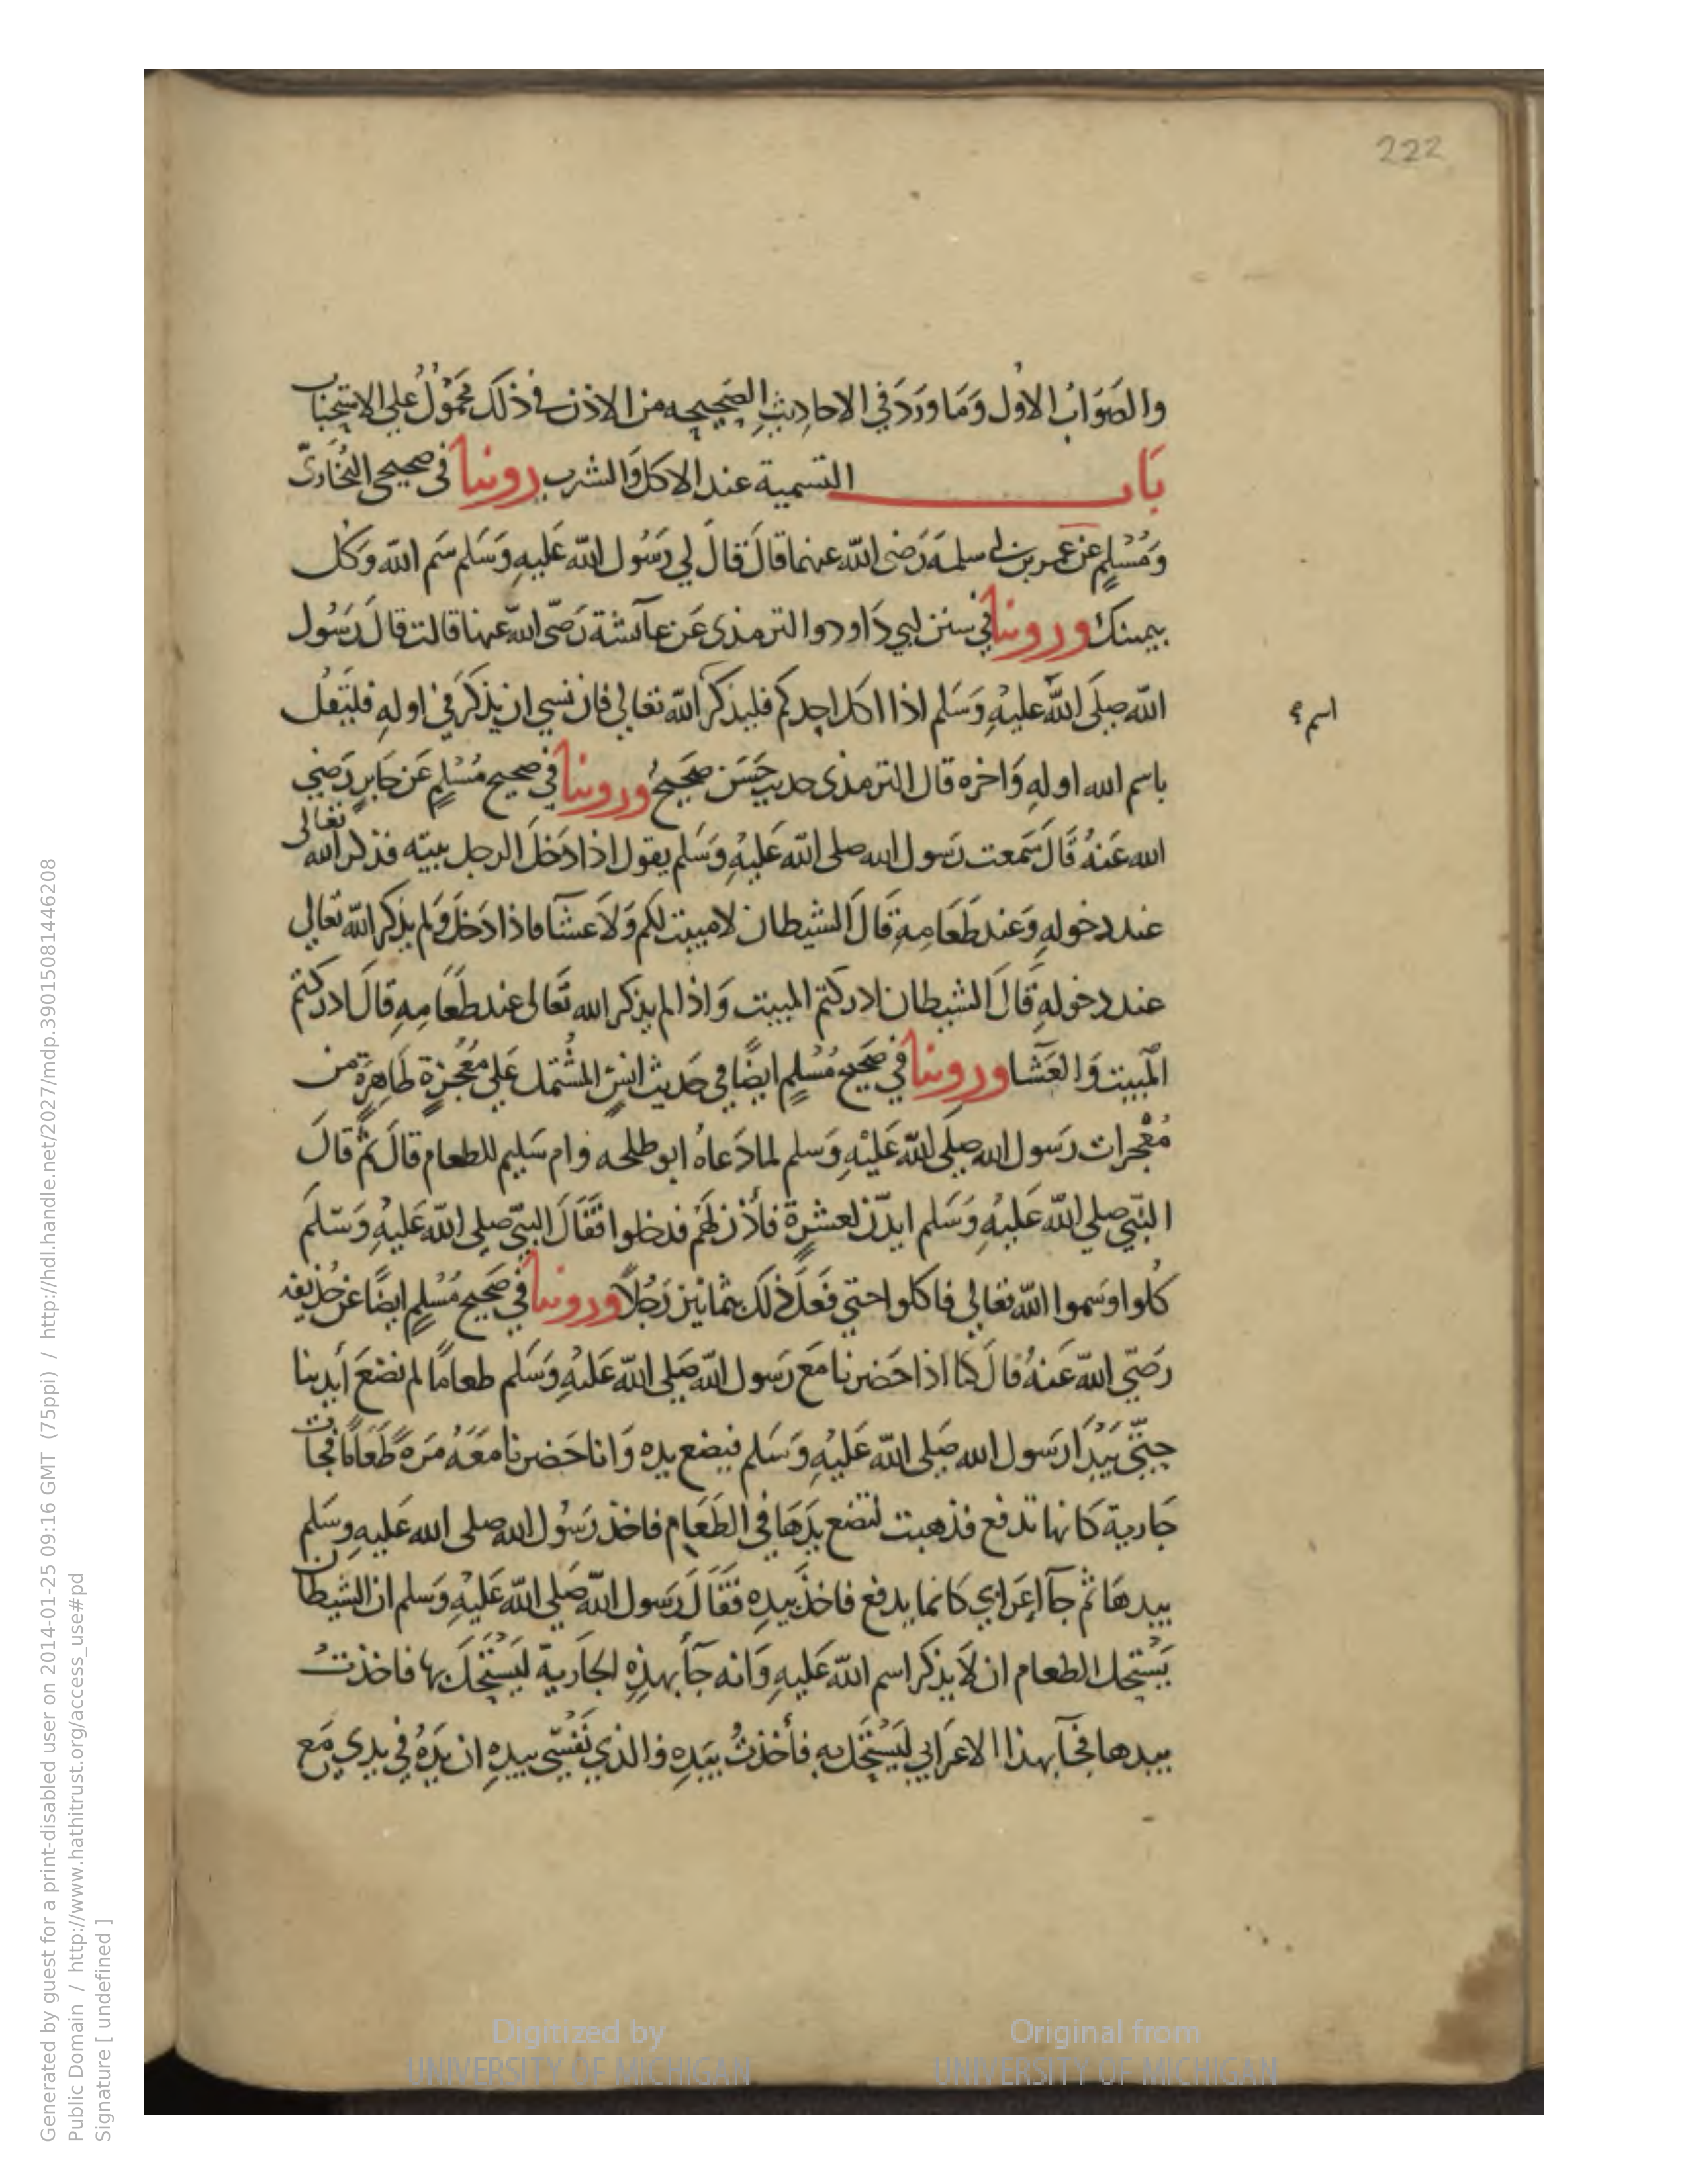 222
والصَوَابُ الاول وَمَا وَرَدَ في الاحاديثِ الصَحيحه من الاذن في ذلكَ مَحَمْوُلُ علي الاستحباب
بَاب التسمية عند الاكل وَالشرب روينا في صحيح البُخَاريّ
وَمُسْلِمٍ عن عمر بن ابي سلمَه رَضى الله عنهما قالَ قالَ لي رَسُول الله عَليهِ وَسَلم سَم الله وَكل
بيمينك وروينا في سنن ابي دَاود والترمذى عَن عآئشة رَضّى الله عنها قالت قالَ رَسُول
الله صلَى الله عليْهِ وَسَلم اذا اكل احدكم فليذكر الله تعالي فان نسي ان يذكرَ في اولهِ فليَقُل
اسم
باسم الله اولهِ وَاخره قال الترمذى حديث حَسَن صَحَيحُ وروينا في صحيح مُسْلِمٍ عَن جَابرٍ رَضي
الله عَنهُ قَالَ سَمعت رَسول الله صلى الله عَليْهِ وَسَلم يقول اذا دَخلَ الرجل بيته فذكر الله تعالى
عند دخولهِ وَعند طَعَامِهِ قَالَ الشيطان لا مبيت لكم وَلا عشآ فاذا دَخلَ وَلم يذكر الله تعالي
عند دخولهِ قَالَ الشيطان ادركتم المبيت وَاذا لم يذكر الله تَعَالى عند طَعَامِهِ قالَ ادركتم
المَبيت وَالعَشَا وروينا في صَحَيح مُسْلِمٍ ايضًا في حَديث انسٍ المشُتمل عَلي مُعْجزةٍ ظَاهِرَةٍ من
مُعْجزات رَسول الله صلي الله عَليْهِ وَسلم لما دَعاهُ ابو طلحه وام سَليم للطعام قالَ ثم قالَ
النبّي صلي الله عَليْهِ وَسَلم ايذن لعشرةٍ فأذن لهَم فدخلوا فَقَالَ النبيّ صلي الله عَليهِ وَسَلَم
كُلوا وسَموا الله تعالي فاكلوا حتي فَعلَ ذلك بثمانين رَجُلاً وروينا في صَحَيح مُسْلِمٍ ايضًا عن حُذيفه
رَضيّ الله عَنهُ قالَ كنا اذا حَضرنا مَع رَسول الله صَلي الله عَليْهِ وَسَلم طعامًا لم نضَعَ أيدينا
حتيّ يَبَدَا رَسول الله صَلى الله عَليْهِ وَسَلم فيضع يده وَانا حَضرنا مَعَهُ مَرةً طَعَامًا فجات
جَارية كَانها تدفع فذهبت لتضع يدَهَا في الطَعَام فاخذ رَسُول الله صلى الله عَليهِ وسَلم
بيدهَا ثم جآ اعَرابي كَانما يدفع فاخذَ بيدهِ فَقَالَ رَسول الله صَلي الله عَليْهِ وَسَلم ان الشيطان
يَسْتحِل الطعام ان لا يذكر اسم الله عَليهِ وَانه جآ بهذهِ الجَارية ليَسْتَحَلَ بها فاخذتُ
بيدها فجآ بهذا الاعَرابي ليَسْتَحل بهِ فأخذتُ بيَدهِ والذي نَفسْيّ بيدهِ ان يَدهُ في يدي مَع